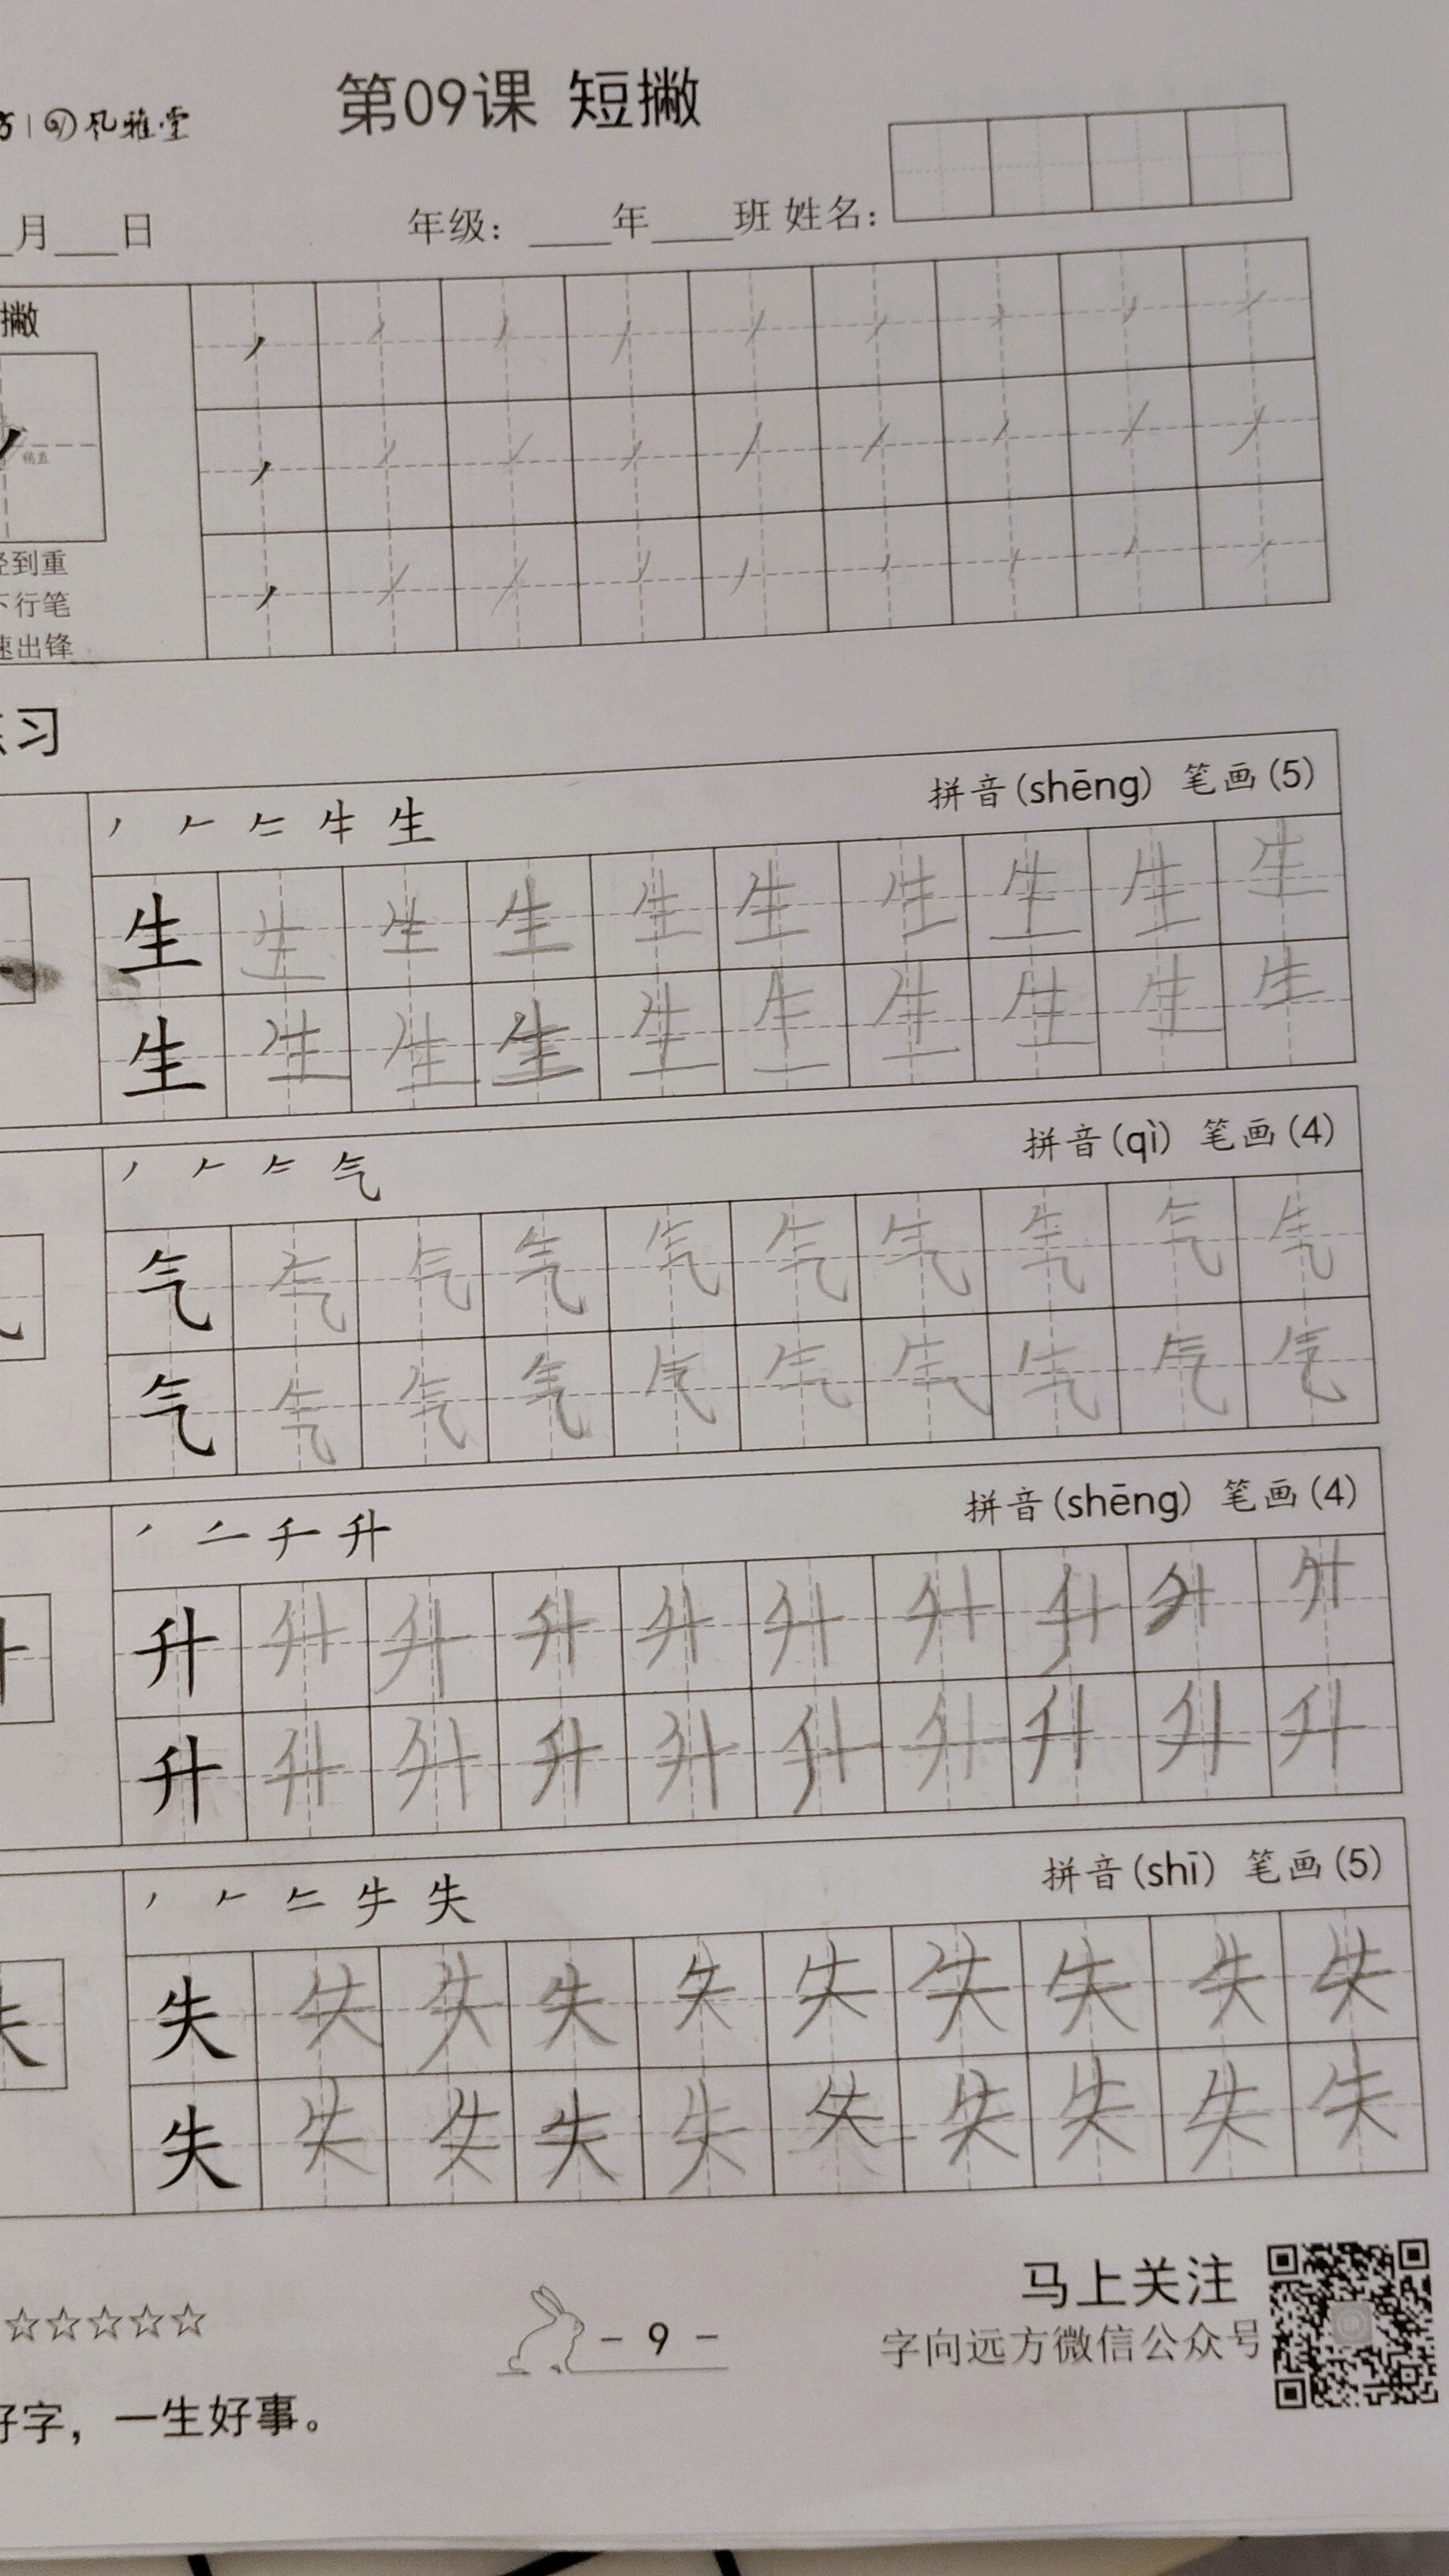 风雅堂
第09课 短撇
月___日 年级：____年____班 姓名：
撇
稍直
到重
行笔
速出锋
习
拼音(shēng) 笔画(5)
生 生 生 生 生 生 生 生 生 生
生 生 生 生 生 生 生 生 生 生
拼音(qì) 笔画(4)
气 气 气 气 气 气 气 气 气 气
气 气 气 气 气 气 气 气 气 气
拼音(shēng) 笔画(4)
升 升 升 升 升 升 升 升 升 升
升 升 升 升 升 升 升 升 升 升
拼音(shī) 笔画(5)
失 失 失 失 失 失 失 失 失 失
失 失 失 失 失 失 失 失 失 失
☆☆☆☆☆
- 9 -
马上关注
字向远方微信公众号
好字，一生好事。